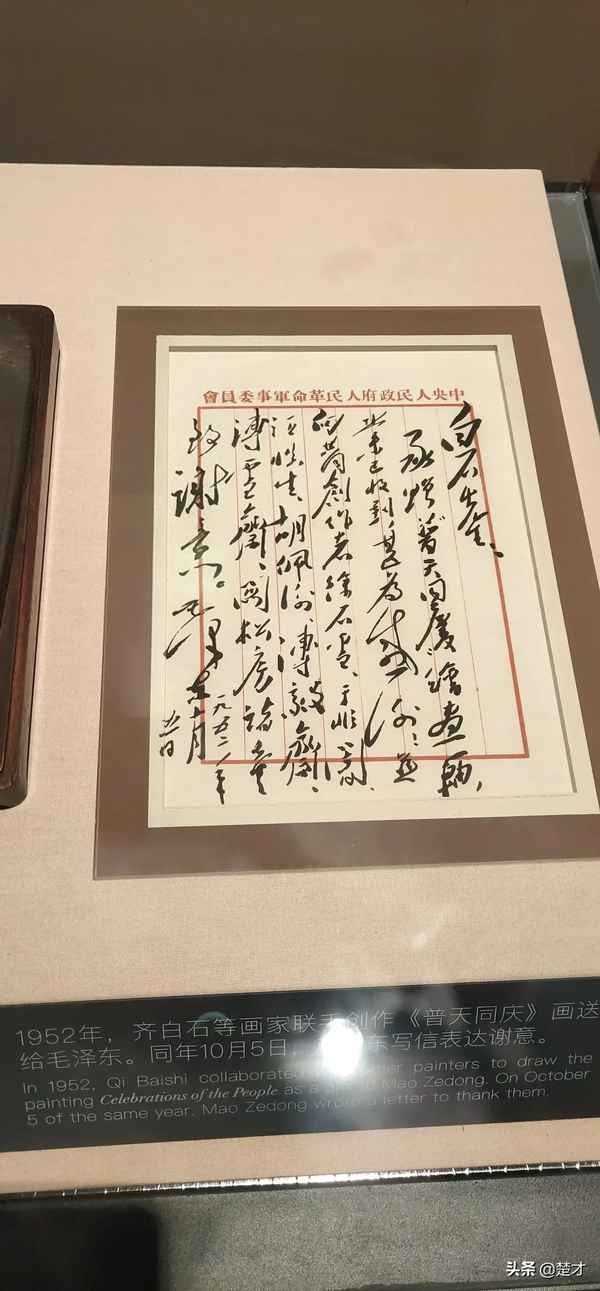 中央人民政府人民革命軍事委員會
白石先生：
承贈普天同慶繪畫一軸，
業已收到，甚為感謝！並
向共同創作者徐石雪、于非闇、
汪慎生、胡佩衡、溥毅齋、
溥雪齋、關松房諸先生
致謝意。毛澤東
一九五二年
十月
五日
1952年，齐白石等画家联手创作《普天同庆》画送
给毛泽东。同年10月5日，东写信表达谢意。
In 1952, Qi Baishi collaborated painters to draw the
painting Celebrations of the People as a Mao Zedong. On October
5 of the same year, Mao Zedong wrote a letter to thank them.
头条 @楚才